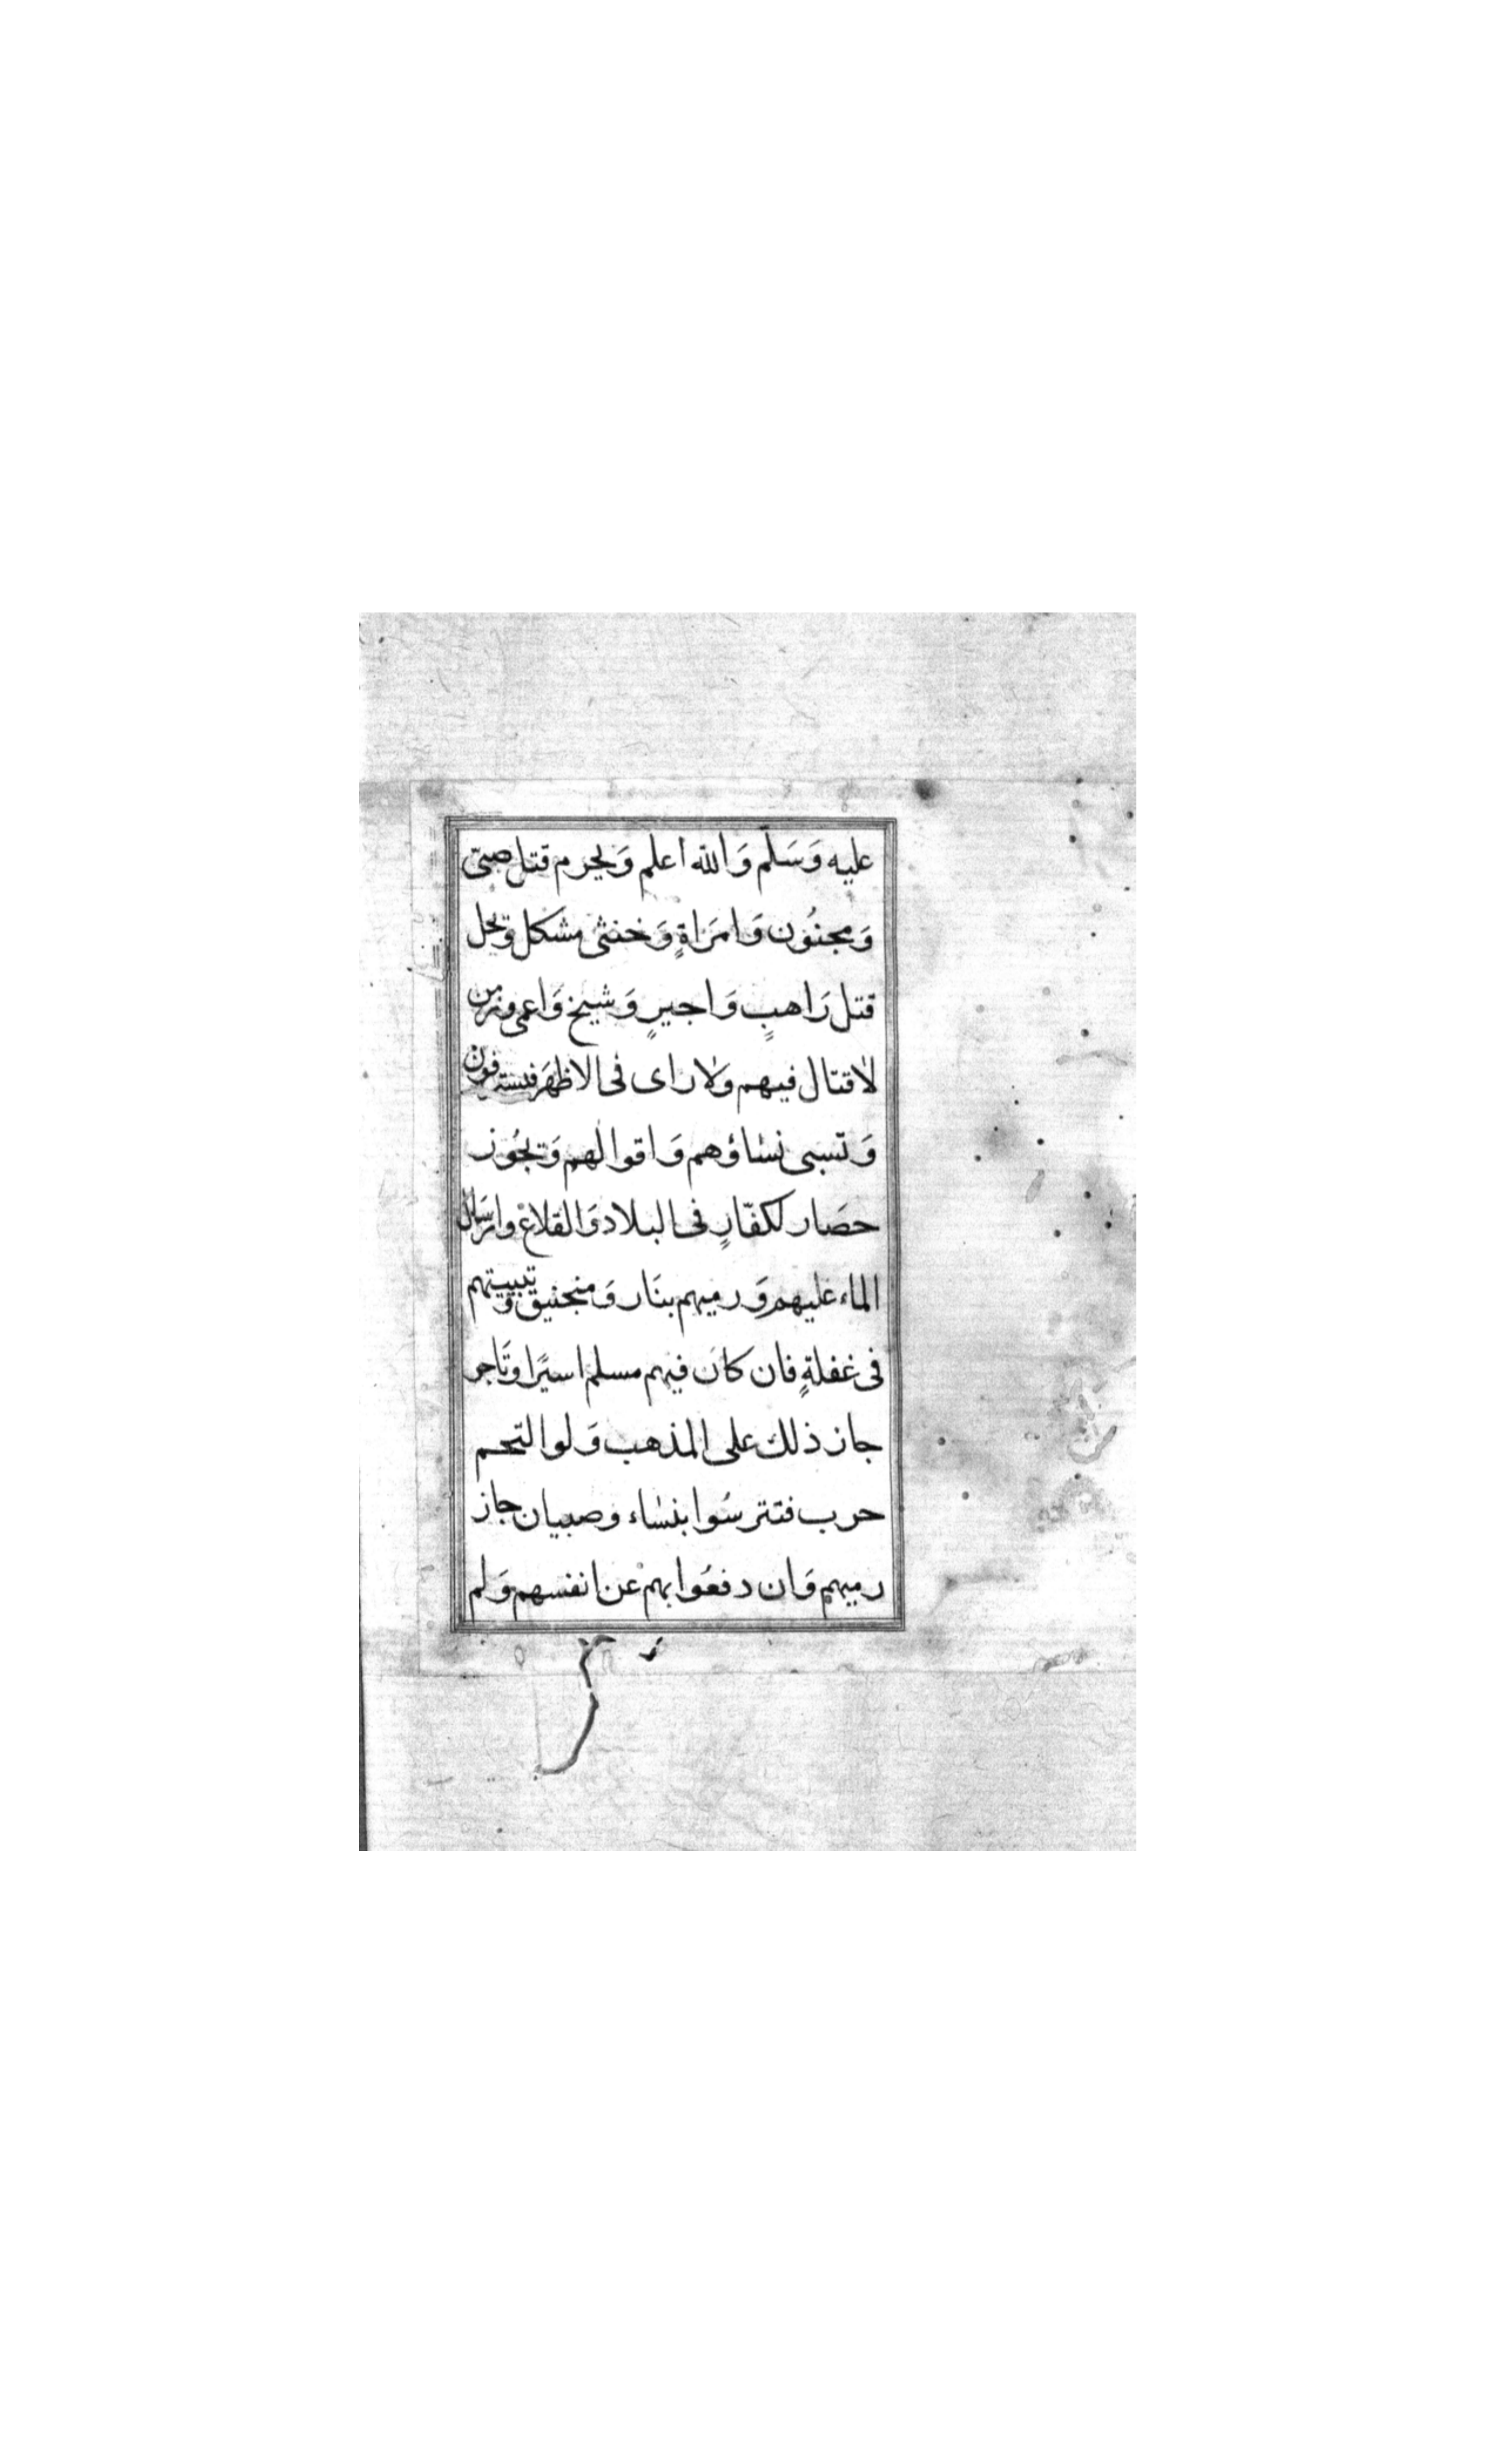 عليه وَسَلّم وَالله اعلم وَيحرم قتل صبىّ
وَمجنوُن وَامرَاةٍ وَخنثى مشكل وَيحل
قتل رَاهبٍ وَاجيرٍ وَشيخ وَاعمى وزمن
لاقتال فيهم وَلاراى فى الاظهَر فيسترقون
وَتسبى نسَاؤهم وَاقوالهم وَيجُوز
حصَار لكفّارٍ فى البلاد وَالقلاعْ وارسَال
الماء عليهم وَرميهم بنَار وَمنجنيق وتبييتهم
فى غفلةٍ فان كان فيهم مسلم اسيًرا وتَاجر
جاز ذلك على المذهب وَلوا لتحم
حرب فتترسُوا بنسَاء وصبيان جاز
رميهم وَان دفعُوا بهمْ عن انفسهم وَلم